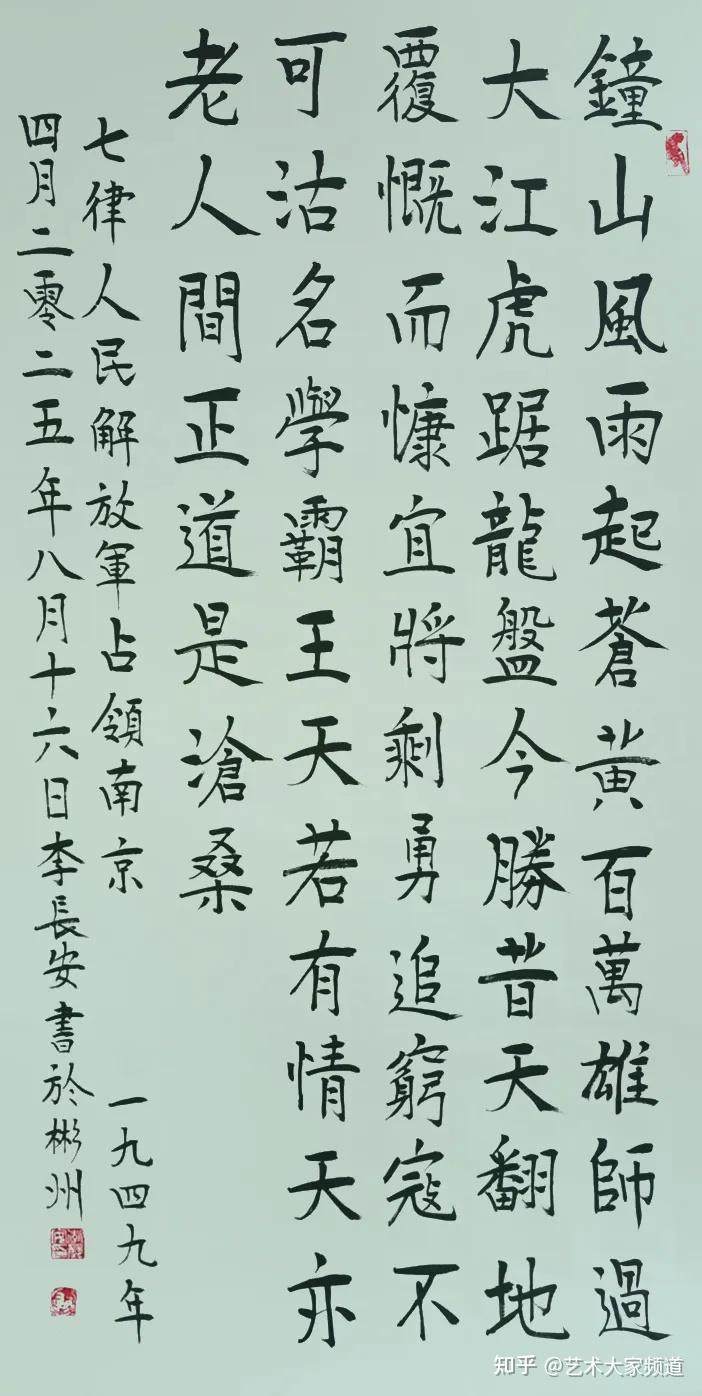 鐘山風雨起蒼黃百萬雄師過
大江虎踞龍盤今勝昔天翻地
覆慨而慷宜將剩勇追窮寇不
可沽名學霸王天若有情天亦
老人間正道是滄桑
七律人民解放軍占領南京 一九四九年
四月二零二五年八月十六日李長安書於彬州
知乎 @艺术大家频道